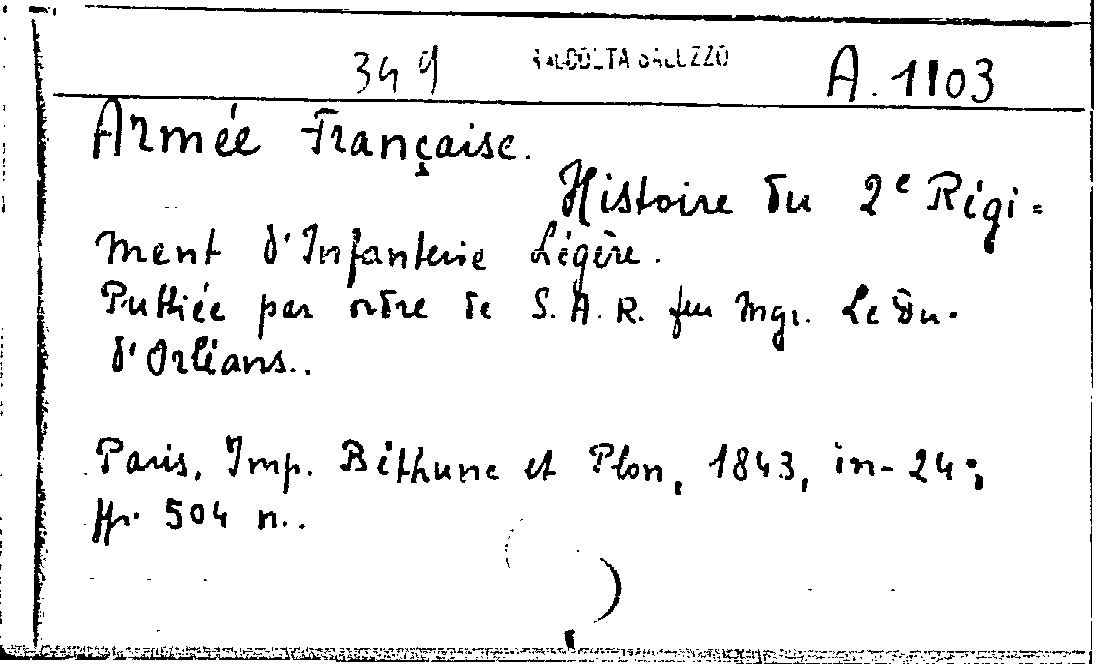 349 RACCOLTA SALUZZO A. 1103
Armée Française.
Histoire du 2e Régi=
ment d'Infanterie Légère.
Publiée par ordre de S.A.R. feu Mgr. Le Du.
d'Orléans..
Paris, Imp. Béthune et Plon, 1843, in-24°;
pp. 504 n..